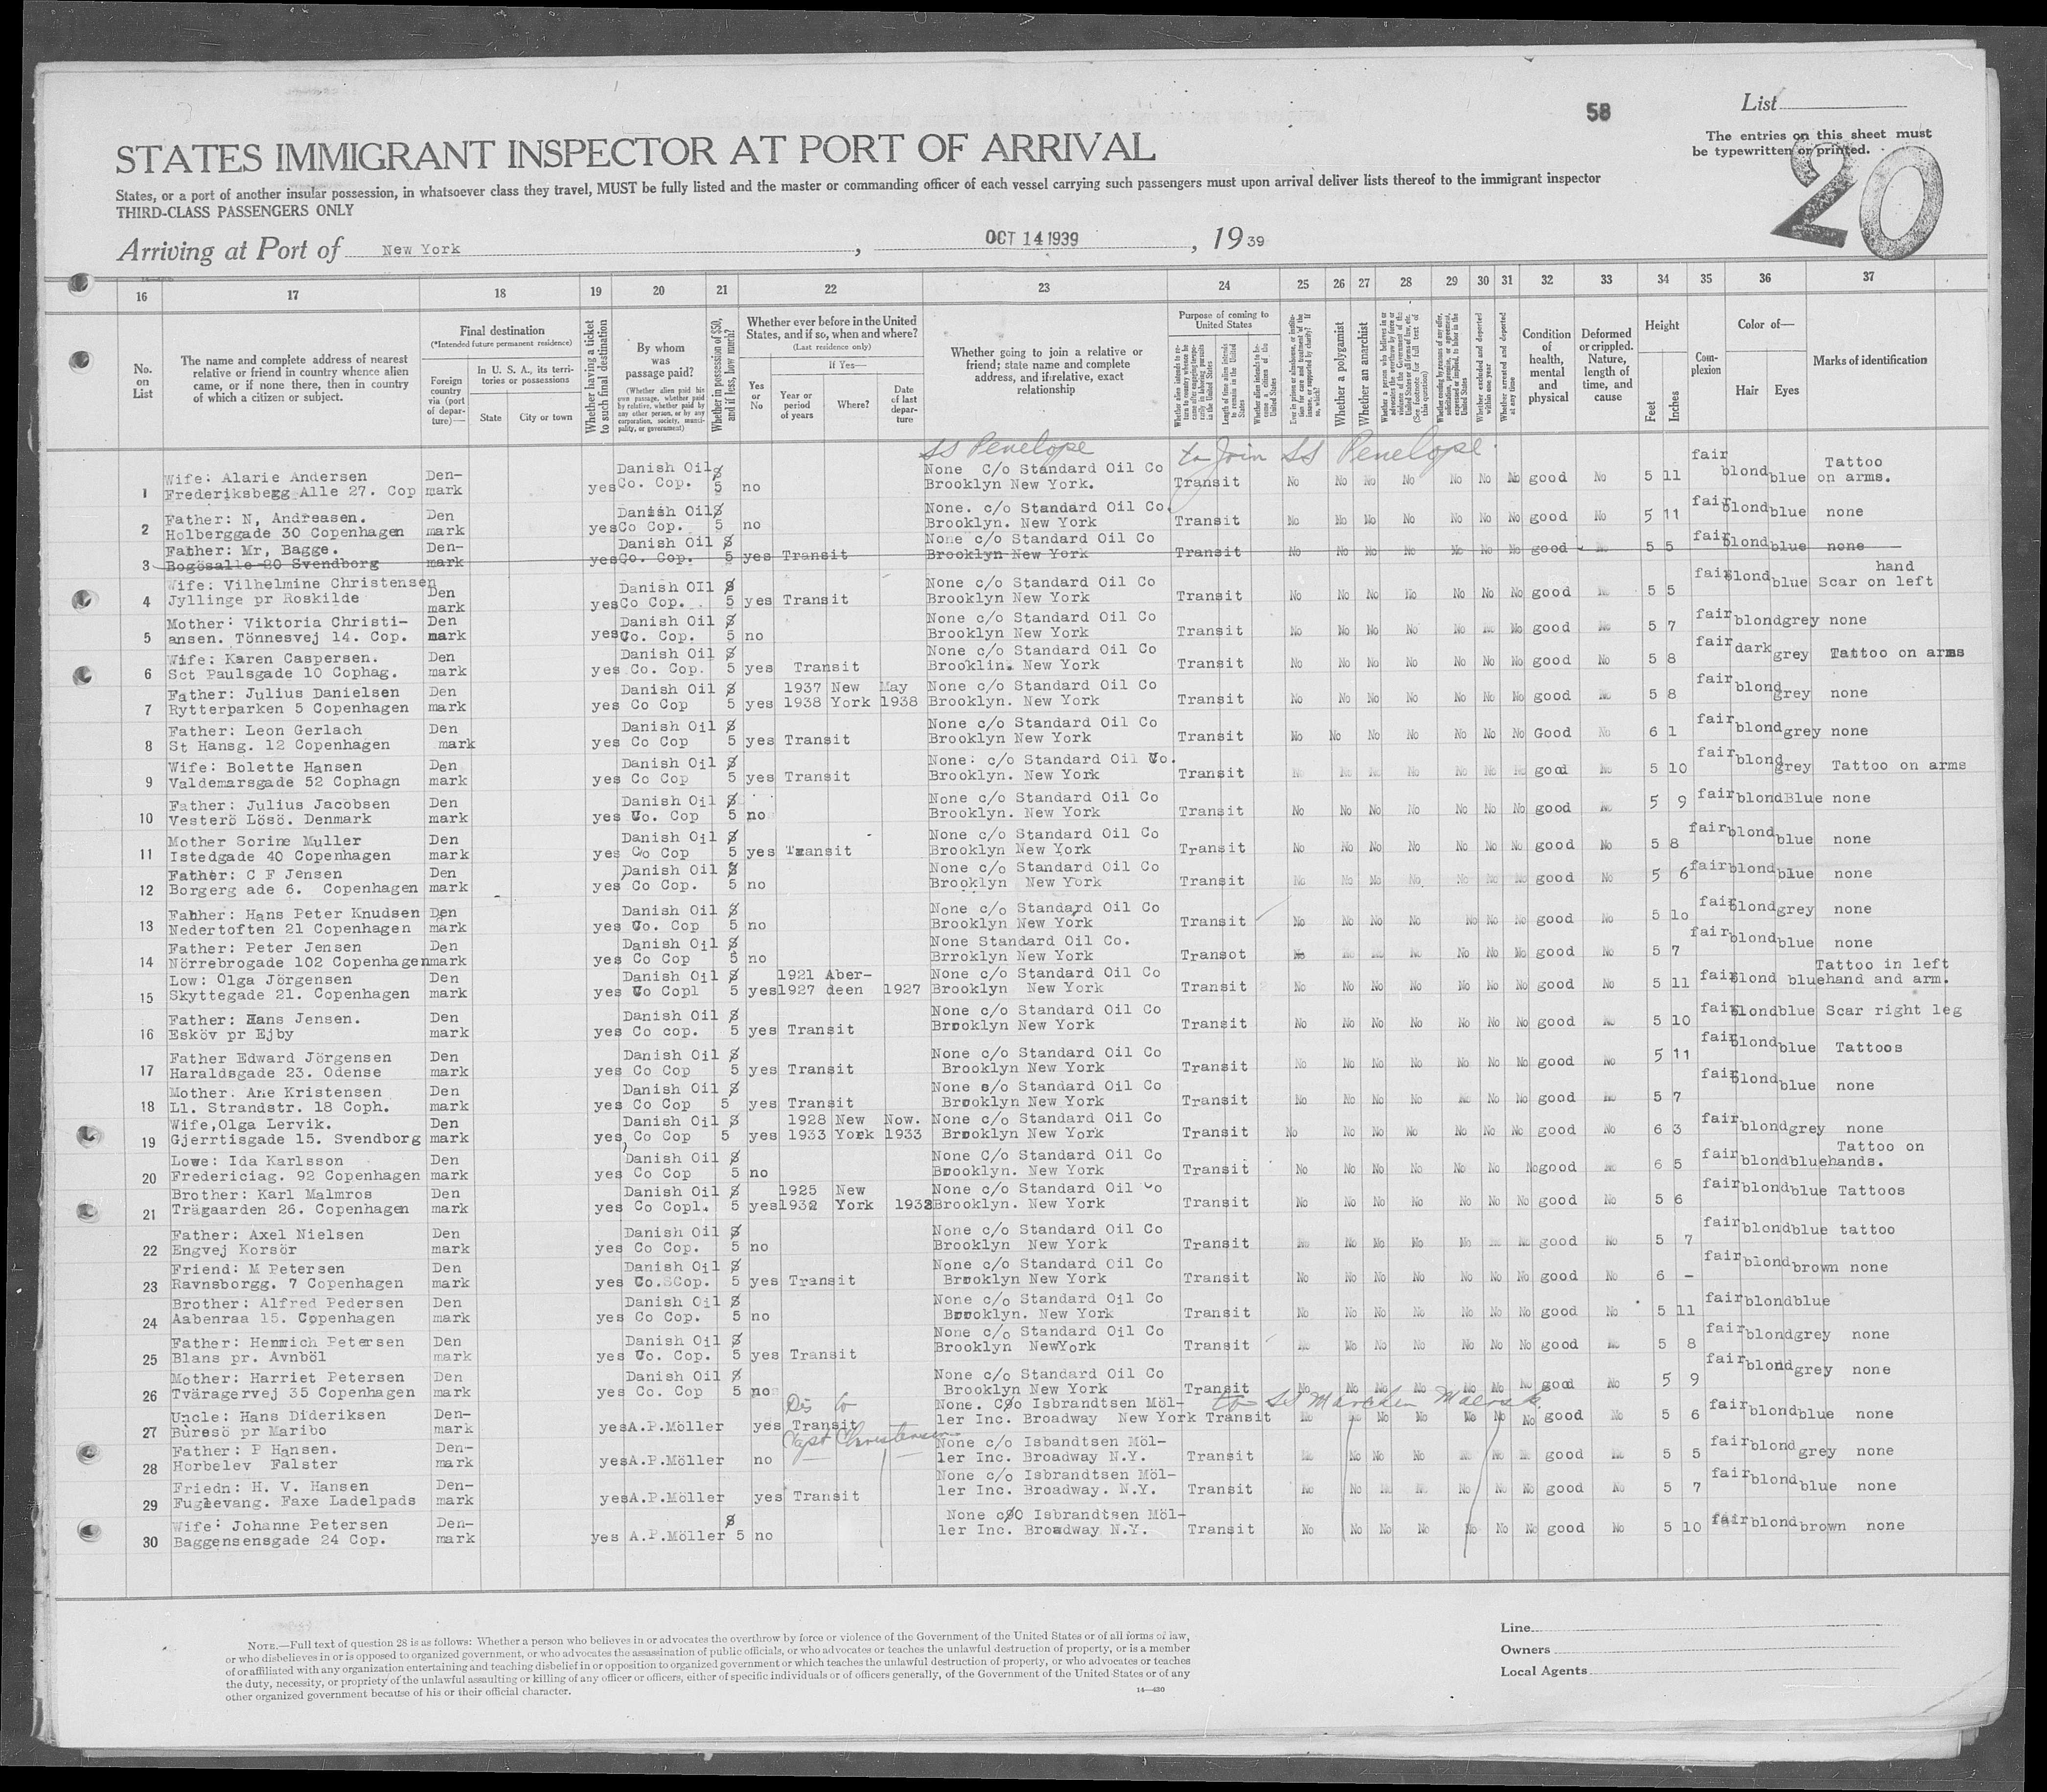 58
List
The entries on this sheet must
be typewritten or printed.
20
STATES IMMIGRANT INSPECTOR AT PORT OF ARRIVAL
States, or a port of another insular possession, in whatsoever class they travel, MUST be fully listed and the master or commanding officer of each vessel carrying such passengers must upon arrival deliver lists thereof to the immigrant inspector
THIRD-CLASS PASSENGERS ONLY
Arriving at Port of New York, OCT 14 1939, 19 39
16 17 18 19 20 21 22 23 24 25 26 27 28 29 30 31 32 33 34 35 36 37
No. on List
The name and complete address of nearest relative or friend in country whence alien came, or if none there, then in country of which a citizen or subject.
Final destination
(*Intended future permanent residence)
Foreign country via (port of departure)—
In U. S. A., its territories or possessions
State
City or town
Whether having a ticket to such final destination
By whom was passage paid?
(Whether alien paid his own passage, whether paid by relative, whether paid by any other person, or by any corporation, society, municipality, or government)
Whether in possession of $50, and if less, how much?
Whether ever before in the United States, and if so, when and where?
(Last residence only)
Yes or No
If Yes—
Year or period of years
Where?
Date of last departure
Whether going to join a relative or friend; state name and complete address, and if relative, exact relationship
Purpose of coming to United States
Whether a polygamist
Whether an anarchist
Whether excluded and deported within one year
Whether arrested and deported at any time
Condition of health, mental and physical
Deformed or crippled. Nature, length of time, and cause
Height
Feet
Inches
Complexion
Color of—
Hair
Eyes
Marks of identification
SS Penelope to Join SS Penelope
Wife: Alarie Andersen Den- Danish Oil $ None C/o Standard Oil Co fair Tattoo
1 Frederiksbegg Alle 27. Cop mark yes Co. Cop. 5 no Brooklyn New York. Transit No No No No No No No good No 5 11 blond blue on arms.
Father: N, Andreasen. Den Danish Oil $ None. c/o Standard Oil Co. fair
2 Holberggade 30 Copenhagen mark yes Co Cop. 5 no Brooklyn. New York Transit No No No No No No No good No 5 11 blond blue none
Father: Mr, Bagge. Den- Danish Oil $ None c/o Standard Oil Co fair
3 Bogösalle 20 Svendborg mark yes Co. Cop. 5 yes Transit Brooklyn New York Transit No No No No No No No good No 5 5 blond blue none
Wife: Vilhelmine Christensen Den Danish OIl $ None c/o Standard Oil Co fair hand
4 Jyllinge pr Roskilde mark yes Co Cop. 5 yes Transit Brooklyn New York Transit No No No No No No No good No 5 5 blond blue Scar on left
Mother: Viktoria Christi- Den Danish Oil $ None c/o Standard Oil Co
5 ansen. Tönnesvej 14. Cop. mark yes Co. Cop. 5 no Brooklyn New York Transit No No No No No No No good No 5 7 fair blond grey none
Wife: Karen Caspersen. Den Danish Oil $ None c/o Standard Oil Co
6 Sct Paulsgade 10 Cophag. mark yes Co. Cop. 5 yes Transit Brooklin. New York Transit No No No No No No No good No 5 8 fair dark grey Tattoo on arms
Father: Julius Danielsen Den Danish Oil $ 1937 New May None c/o Standard Oil Co
7 Rytterparken 5 Copenhagen mark yes Co Cop 5 yes 1938 York 1938 Brooklyn. New York Transit No No No No No No No good No 5 8 fair blond grey none
Father: Leon Gerlach Den Danish Oil $ None c/o Standard Oil Co
8 St Hansg. 12 Copenhagen mark yes Co Cop 5 yes Transit Brooklyn New York Transit No No No No No No No Good No 6 1 fair blond grey none
Wife: Bolette Hansen Den Danish Oil $ None: c/o Standard Oil Co.
9 Valdemarsgade 52 Cophagn mark yes Co Cop 5 yes Transit Brooklyn. New York Transit No No No No No No No good No 5 10 fair blond grey Tattoo on arms
Father: Julius Jacobsen Den Danish Oil $ None c/o Standard Oil Co
10 Vesterö Lösö. Denmark mark yes Co. Cop 5 no Brooklyn. New York Transit No No No No No No No good No 5 9 fair blond Blue none
Mother Sorine Muller Den Danish Oil $ None c/o Standard Oil Co
11 Istedgade 40 Copenhagen mark yes Co Cop 5 yes Transit Brooklyn New York Transit No No No No No No No good No 5 8 fair blond blue none
Father: C F Jensen Den Danish Oil $ None c/o Standard Oil Co
12 Borgerg ade 6. Copenhagen mark yes Co Cop. 5 no Brooklyn New York Transit No No No No No No No good No 5 6 fair blond blue none
Father: Hans Peter Knudsen Den Danish Oil $ None c/o Standard Oil Co
13 Nedertoften 21 Copenhagen mark yes Co. Cop 5 no Brooklyn New York Transit No No No No No No No good No 5 10 fair blond grey none
Father: Peter Jensen Den Danish Oil $ None Standard Oil Co.
14 Nörrebrogade 102 Copenhagen mark yes Co Cop 5 no Brrooklyn New York Transot No No No No No No No good No 5 7 fair blond blue none
Low: Olga Jörgensen Den Danish Oil $ 1921 Aber- None c/o Standard Oil Co Tattoo in left
15 Skyttegade 21. Copenhagen mark yes Co Copl 5 yes 1927 deen 1927 Brooklyn New York Transit No No No No No No No good No 5 11 fair blond blue hand and arm.
Father: Hans Jensen. Den Danish Oil $ None c/o Standard Oil Co
16 Esköv pr Ejby mark yes Co cop. 5 yes Transit Brooklyn New York Transit No No No No No No No good No 5 10 fair blond blue Scar right leg
Father Edward Jörgensen Den Danish Oil $ None c/o Standard Oil Co
17 Haraldsgade 23. Odense mark yes Co Cop 5 yes Transit Brooklyn New York Transit No No No No No No No good No 5 11 fair blond blue Tattoos
Mother: Ane Kristensen Den Danish Oil $ None s/o Standard Oil Co
18 Ll. Strandstr. 18 Coph. mark yes Co Cop 5 yes Transit Brooklyn New York Transit No No No No No No No good No 5 7 fair blond blue none
Wife, Olga Lervik. Den Danish Oil $ 1928 New Now. None c/o Standard Oil Co
19 Gjerrtisgade 15. Svendborg mark yes, Co Cop 5 yes 1933 York 1933 Brooklyn New York Transit No No No No No No No good No 6 3 fair blond grey none
Lowe: Ida Karlsson Den Danish Oil $ None C/o Standard Oil Co Tattoo on
20 Fredericiag. 92 Copenhagen mark yes Co Cop 5 no Brooklyn. New York Transit No No No No No No No good No 6 5 fair blond blue hands.
Brother: Karl Malmros Den Danish Oil $ 1925 New None c/o Standard Oil Co
21 Trägaarden 26. Copenhagen mark yes Co Copl. 5 yes 1932 York 1932 Brooklyn. New York Transit No No No No No No No good No 5 6 fair blond blue Tattoos
Father: Axel Nielsen Den Danish Oil $ None c/o Standard Oil Co
22 Engvej Korsör mark yes Co Cop. 5 no Brooklyn New York Transit No No No No No No No good No 5 7 fair blond blue tattoo
Friend: M Petersen Den Danish Oil $ None c/o Standard Oil Co
23 Ravnsborgg. 7 Copenhagen mark yes Co. Cop. 5 yes Transit Brooklyn New York Transit No No No No No No No good No 6 – fair blond brown none
Brother: Alfred Pedersen Den Danish Oil $ None c/o Standard Oil Co
24 Aabenraa 15. Copenhagen mark yes Co Cop. 5 no Brooklyn. New York Transit No No No No No No No good No 5 11 fair blond blue
Father: Henrich Petersen Den Danish Oil $ None c/o Standard Oil Co
25 Blans pr. Avnböl mark yes Co. Cop. 5 yes Transit Brooklyn NewYork Transit No No No No No No No good No 5 8 fair blond grey none
Mother: Harriet Petersen Den Danish Oil $ None c/o Standard Oil Co
26 Tväragervej 35 Copenhagen mark yes Co. Cop 5 no Brooklyn New York Transit No No No No No No No good No 5 9 fair blond grey none
to SS Marchen Maersk
Uncle: Hans Dideriksen Den- None. C/o Isbrandtsen Möl-
27 Büresö pr Maribo mark yes A.P.Möller yes Transit ler Inc. Broadway New York Transit No No No No No No No good No 5 6 fair blond blue none
Capt Christensen
Father: P Hansen. Den- None c/o Isbandtsen Möl-
28 Horbelev Falster mark yes A.P.Möller no ler Inc. Broadway N.Y. Transit No No No No No No No good No 5 5 fair blond grey none
Friedn: H. V. Hansen Den- None c/o Isbrandtsen Möl-
29 Fuglevang. Faxe Ladelpads mark yes A.P.Möller yes Transit ler Inc. Broadway. N.Y. Transit No No No No No No No good No 5 7 fair blond blue none
Wife: Johanne Petersen Den- $ None c/O Isbrandtsen Möl-
30 Baggensensgade 24 Cop. mark yes A.P.Möller 5 no ler Inc. Broadway N.Y. Transit No No No No No No No good No 5 10 fair blond brown none
NOTE.—Full text of question 28 is as follows: Whether a person who believes in or advocates the overthrow by force or violence of the Government of the United States or of all forms of law,
or who disbelieves in or is opposed to organized government, or who advocates the assassination of public officials, or who advocates or teaches the unlawful destruction of property, or is a member
of or affiliated with any organization entertaining and teaching disbelief in or opposition to organized government or which teaches the unlawful destruction of property, or who advocates or teaches
the duty, necessity, or propriety of the unlawful assaulting or killing of any officer or officers, either of specific individuals or of officers generally, of the Government of the United States or of any
other organized government because of his or their official character.
14—430
Line
Owners
Local Agents